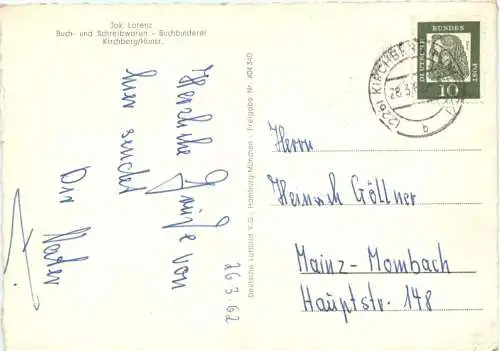 Jak. Lorenz
Buch- und Schreibwaren - Buchbinderei
Kirchberg/Hunsr.
Herzliche Grüße von
hier sendet
Dir Vater
26.3.62
Deutsche Luftbild K.G., Hamburg/München - Freigabe Nr. 404340
DEUTSCHE BUNDES POST
10
KIRCHBERG
28.3.
b
Herrn
Heinrich Göllner
Mainz-Mombach
Hauptstr. 148